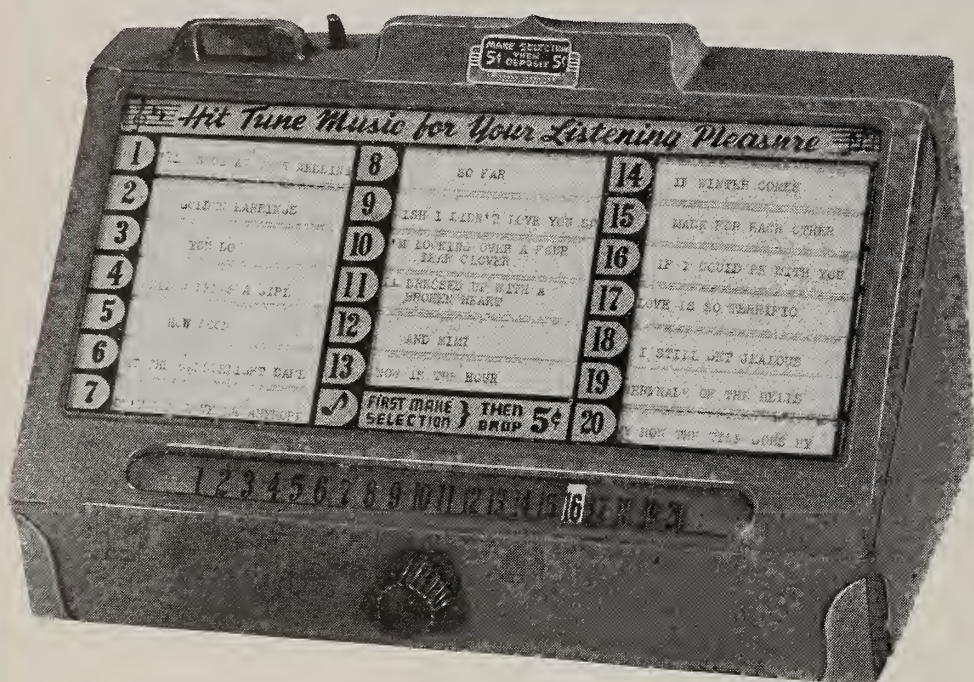 MAKE SELECTION
THEN
5¢ DEPOSIT 5¢
Hit Tune Music for Your Listening Pleasure
1
2 GOLDEN EARRINGS
3 YOU DO
4 A GIRL
5 HOW SOON
6 THE
7 ANYMORE
8 SO FAR
9 ISH I DIDN'T LOVE YOU SO
10 'M LOOKING OVER A FOUR
LEAF CLOVER
11 DRESSED UP WITH A
BROKEN HEART
12 AND MIMI
13 NOW IS THE HOUR
FIRST MAKE
SELECTION } THEN
DROP 5¢
14 IF WINTER COMES
15 MADE FOR EACH OTHER
16 IF I COULD BE WITH YOU
17 LOVE IS SO TERRIFIC
18 I STILL GET JEALOUS
19 OF THE BELLS
20 HOW THE TIME GOES BY
1 2 3 4 5 6 7 8 9 10 11 12 13 14 15 16 17 18 19 20